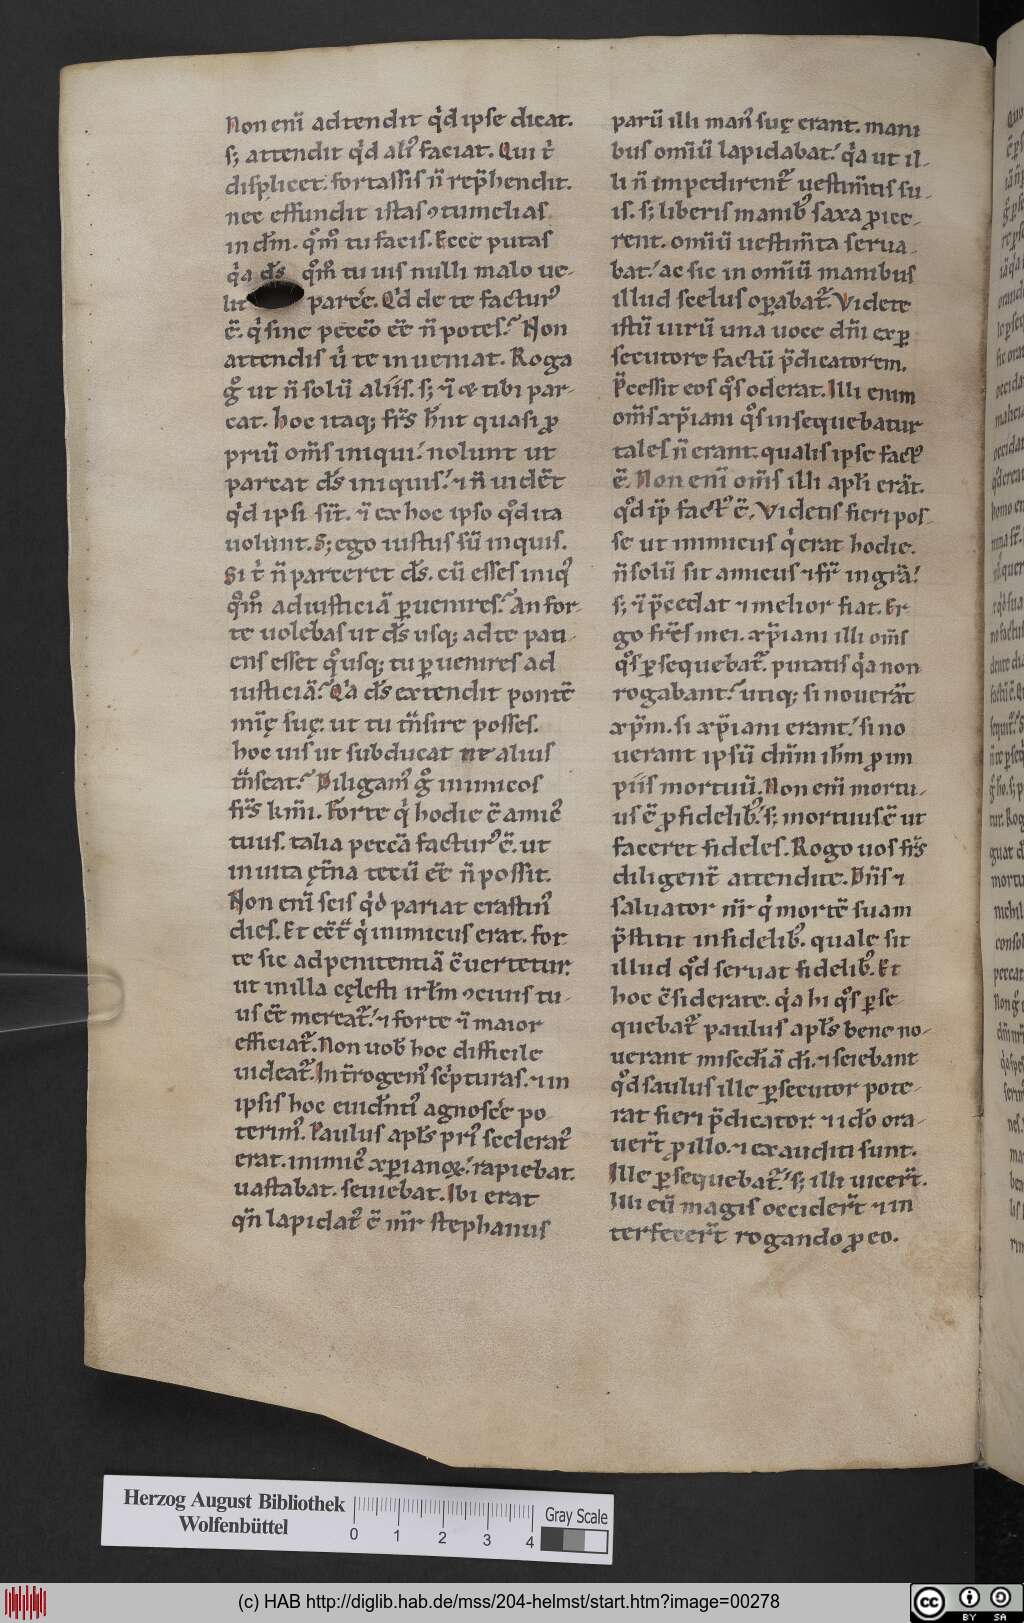 Non enī adtendit qͥd ipse dicat.
s; attendit qͥd aliꝰ faciat. Qui t̄
displicet. fortassis n̄ rep̄hendit.
nec effundit istas ꝯtumelias
in dm̄. qͦmͦ tu facis. Ecce putas
qͥa ds̄ qͦmͦ tu uis nulli malo ue-
lit parcēe. Qͥd de te facturꝰ
ē. qͥ sine peccō eē n̄ potes.ˀ Non
attendis ūˀ te inueniat. Roga
gͦ ut n̄ solū aliis. s; ⁊̄ ce tibi par-
cat. hoc itaq; frs̄ hn̄t quasi ꝓ
priū om̄s iniqui.ˀ nolunt ut
parcat ds̄ iniquis.ˀ ⁊ n̄ uidēt
qͥd ipsi sīt. ⁊̄ ex hoc ipso qͦd ita
uolunt. S; ego iustus sū inquis.
Si t̄ n̄ parceret ds̄. cū esses iniqꝰ
qͦmͦ ad iusticiā ꝑuenires.ˀ An for-
te uolebas ut ds̄ usq; ad te pati-
ens esset qͦusq; tu ꝑuenires ad
iusticiā.ˀ Qͥa ds̄ extendit pontē
mīę suę. ut tu tn̄sire posses.
hoc uis ut subducat ne alius
tn̄seat.ˀ Diligamꝰ gͦ inimicos
frs̄ kmī. Forte qͥ hodie ē amicꝰ
tuus. talia peccā facturꝰ ē. ut
in uita ęt̄na tecū eē n̄ possit.
Non enī scis qͥd pariat crastinꝰ
dies. Et cēt̄ qͥ inimicus erat. for
te sic ad penitentiā ꝯ̄uertetur.
ut in illa cęlesti irl̄m ꝯciuis tu-
us eē mereat᷑.ˀ ⁊ forte ⁊̄ maior
efficiat᷑. Non uob̄ hoc difficile
uideat᷑. Int̄rogemꝰ scͥpturas. ⁊ in
ipsis hoc euidn̄tꝰ agnoscēe po
terimꝰ. Paulus apls̄ priꝰ sceleratꝰ
erat. inimicꝰ xp̄ianoꝝ.ˀ rapiebat.
uastabat. seuiebat. Ibi erat
qn̄ lapidatꝰ ē nr̄ stephanus
parū illi manꝰ suę erant. mani
bus om̄iū lapidabat.ˀ qͥa ut il-
li n̄ impedirent᷑ uestim̄tis su-
is. s; liberis manibꝰ saxa ꝓice-
rent. om̄iū uestim̄ta serua-
bat.ˀ ac sic in om̄iū manibus
illud scelus oꝑabat᷑. Videte
istū uirū una uoce dn̄i ex ꝑ
secutore factū p̄dicatorem.
P̄cessit eos qͦs oderat. Illi enim
om̄s xp̄iani qͦs insequebatur
tales n̄ erant. qualis ipse factꝰ
ē. Non enī om̄s illi apl̄i erāt.
qͦd ip̄ factꝰ ē. Videtis fieri pos-
se ut inimicus qͥ erat hodie.
n̄ solū sit amicus ⁊ fr̄ in gr̄a.ˀ
s; ⁊̄ p̄cedat ⁊ melior fiat. Er
go frēs mei. xp̄iani illi om̄s
qͦs ꝑsequebat᷑. putatis qͥa non
rogabant.ˀ utiq; si nouerāt
xp̄m. si xp̄iani erant.ˀ si no
uerant ipsū dn̄m ih̄m ꝓ im
piis mortuū. Non enī mortu-
us ē ꝓ fidelibꝰ.ˀ s; mortuus ē ut
faceret fideles. Rogo uos frs̄
diligent̄ attendite. Dn̄s ⁊
saluator nr̄ qͥ mortē suam
p̄stitit infidelibꝰ. quale sit
illud qͦd seruat fidelibꝰ. Et
hoc ꝯ̄siderate. qͥa hi qͦs ꝑse-
quebat᷑ paulus apls̄ bene no-
uerant misc̄diā dī. ⁊ sciebant
qͦd saulus ille ꝑsecutor pote-
rat fieri p̄dicator. ⁊ ido ora-
uer̄t ꝓ illo. ⁊ exauditi sunt.
Ille ꝑsequebat᷑.ˀ s; illi uicer̄t.
Illi cū magis occider̄t ⁊ in
terfecer̄t rogando ꝓ eo.
Herzog August Bibliothek
Wolfenbüttel
0 1 2 3 4
Gray Scale
(c) HAB http://diglib.hab.de/mss/204-helmst/start.htm?image=00278
cc BY SA